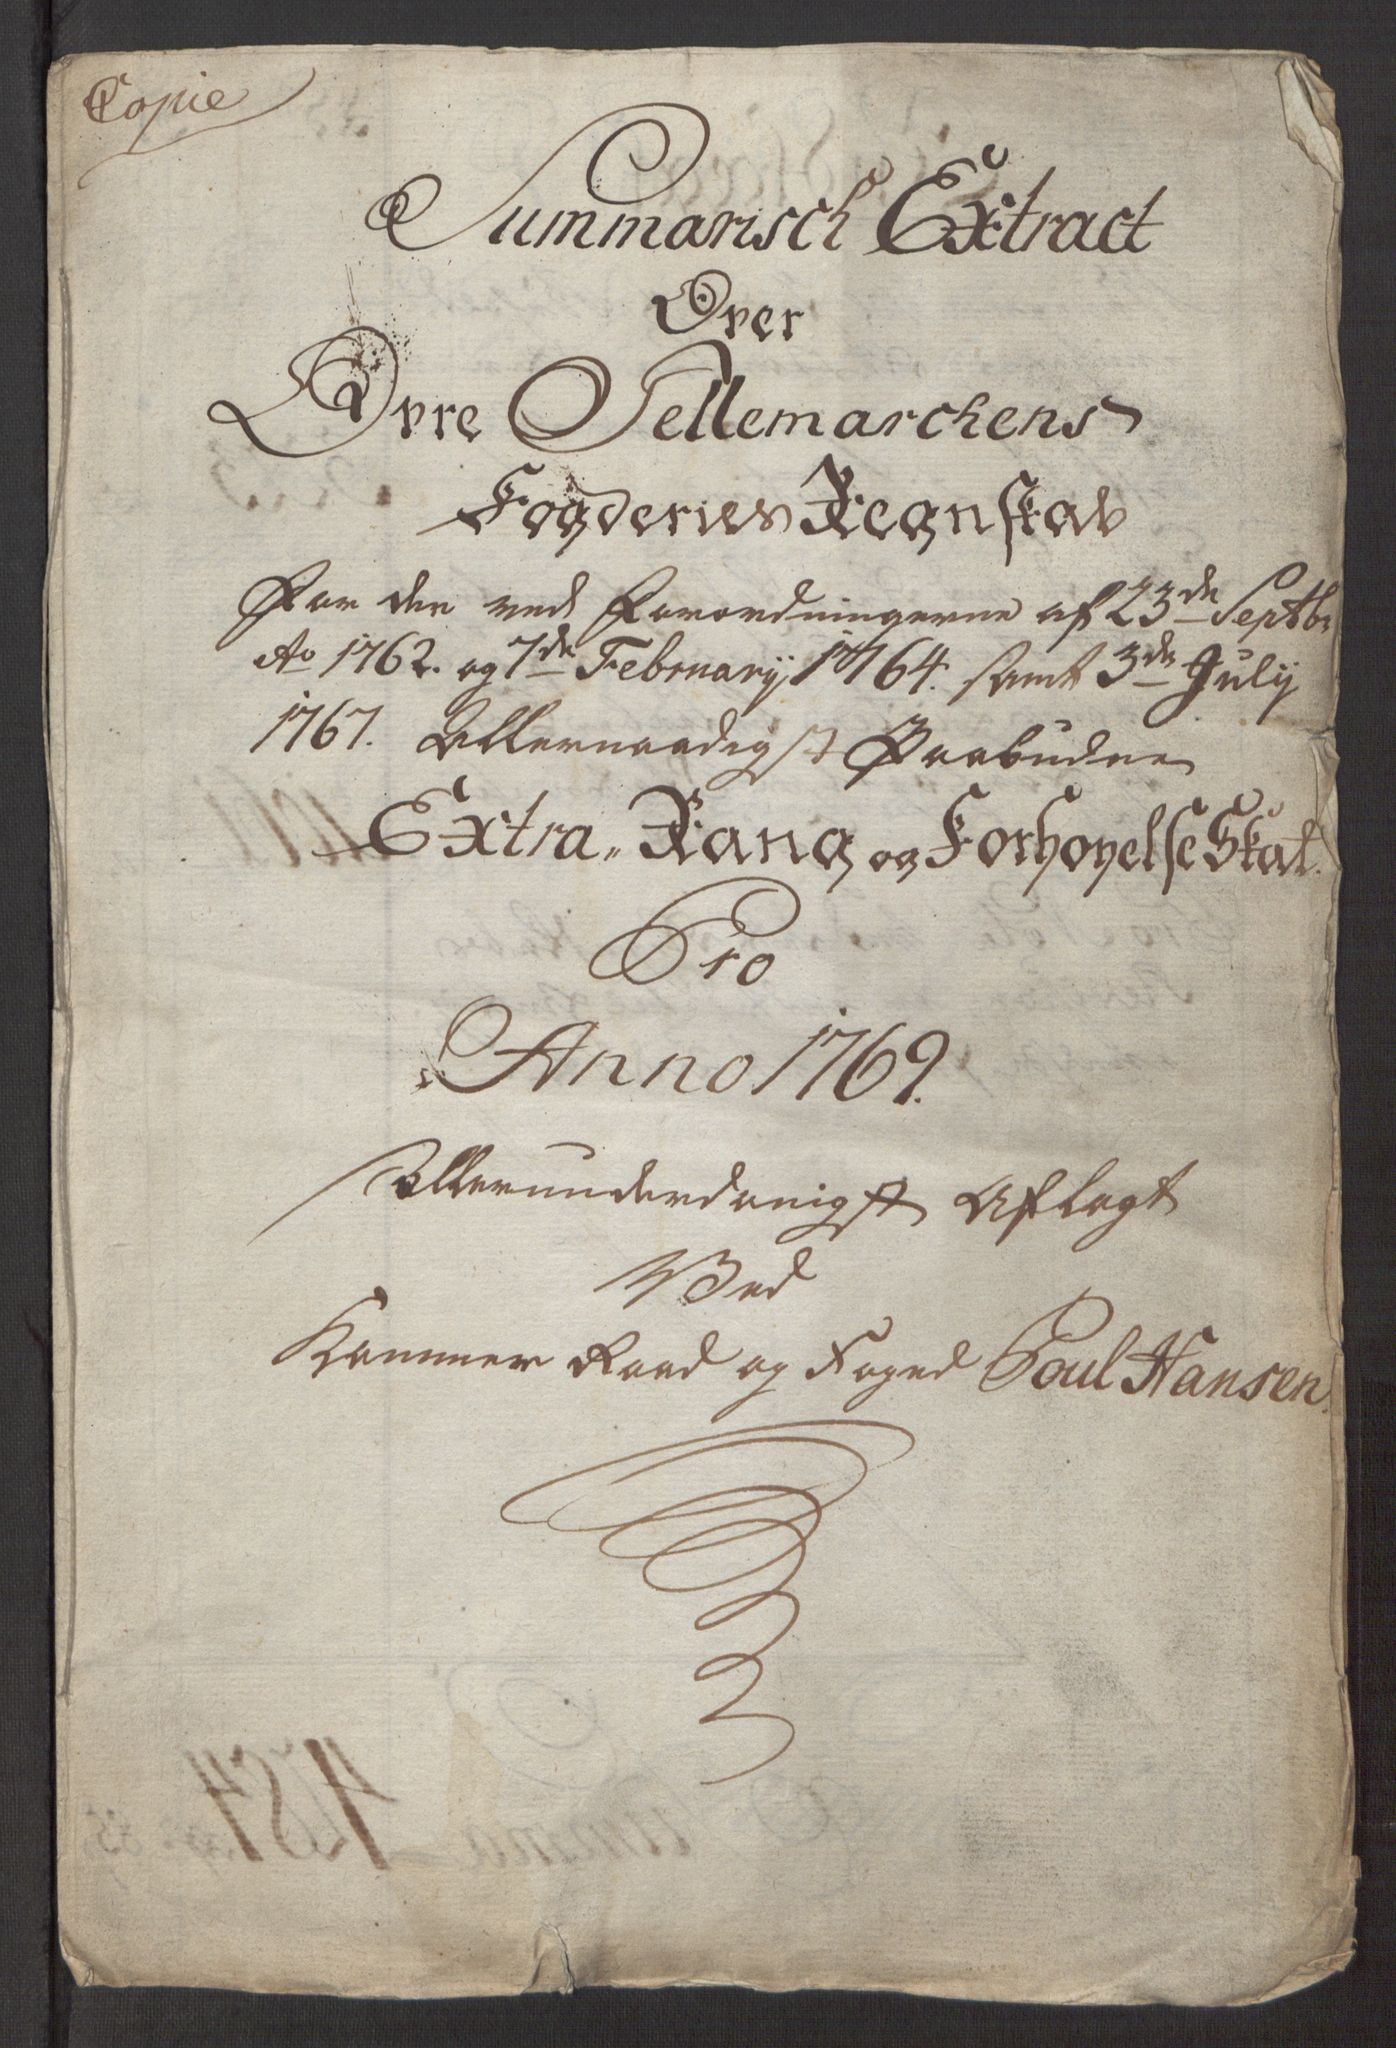 Copie
Summarisch Extract
Over
Øvre Tellemarchens
Fogderies Regnskab
For den ved Forordningerne af 23de Septbr
Ao 1762. og 7de February 1764. samt 3de July
1767. Allernaadigst Paabudne
Extra- Rang og Forhøyelse Skat.
Pro
Anno 1769.
Allerunderdanigst Aflagt
Ved
Kammer Raad og Foged Poul Hansen.